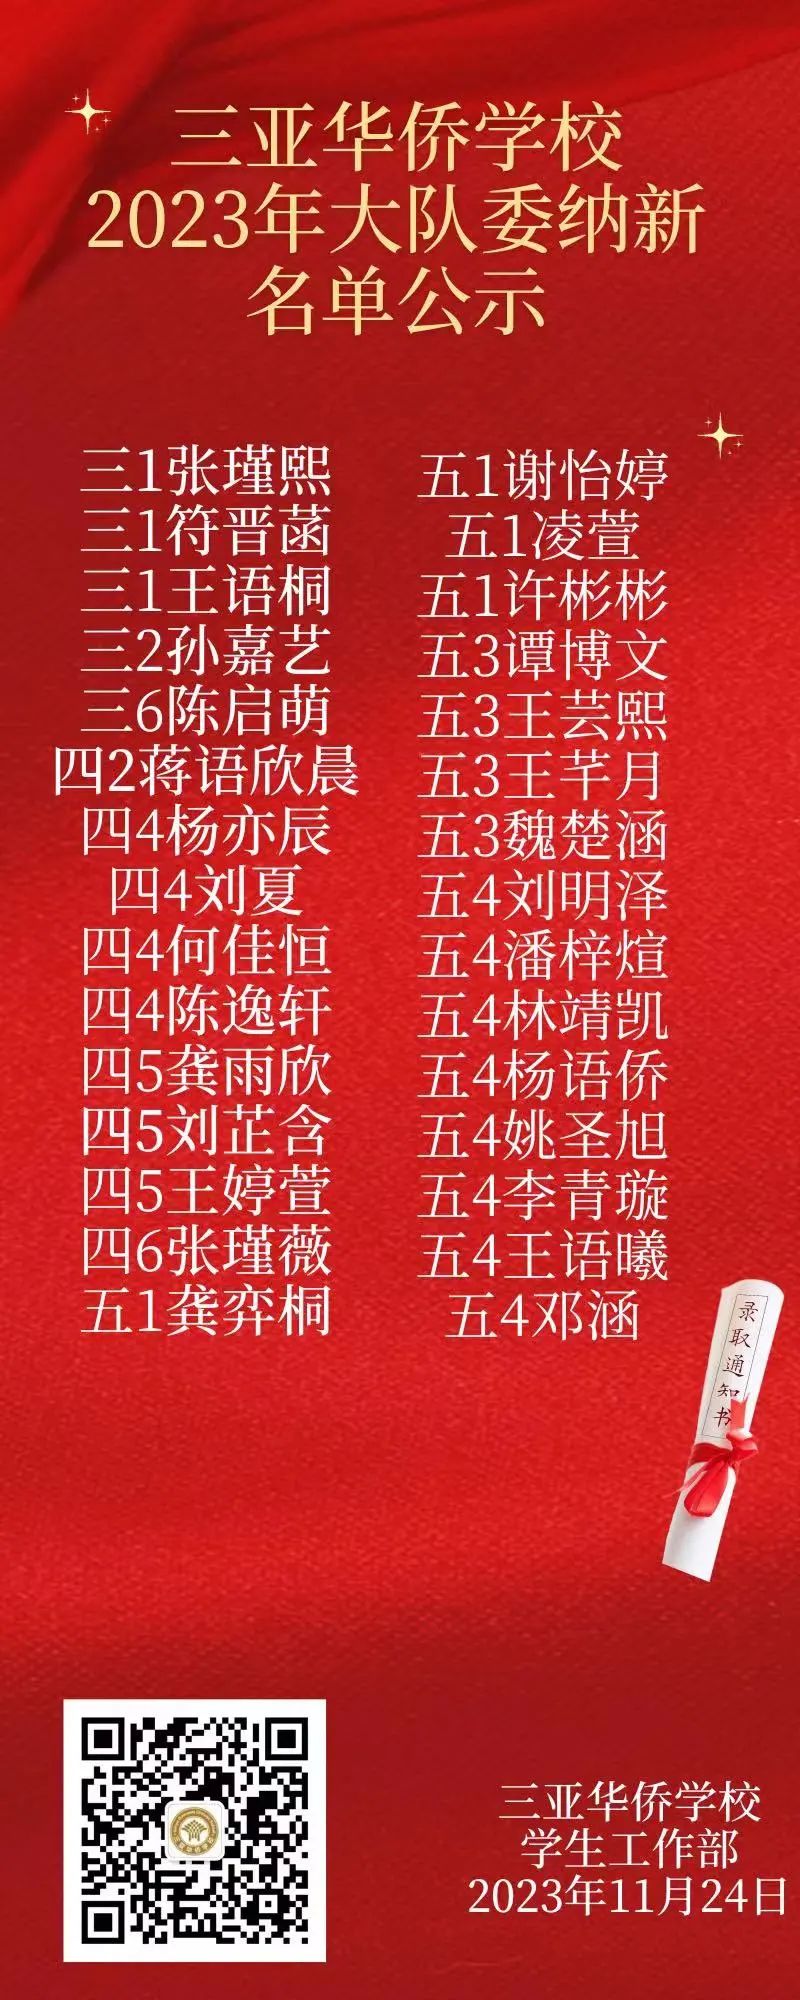 三亚华侨学校
2023年大队委纳新
名单公示
三1张瑾熙
三1符晋菡
三1王语桐
三2孙嘉艺
三6陈启萌
四2蒋语欣晨
四4杨亦辰
四4刘夏
四4何佳恒
四4陈逸轩
四5龚雨欣
四5刘芷含
四5王婷萱
四6张瑾薇
五1龚弈桐
五1谢怡婷
五1凌萱
五1许彬彬
五3谭博文
五3王芸熙
五3王芊月
五3魏楚涵
五4刘明泽
五4潘梓煊
五4林靖凯
五4杨语侨
五4姚圣旭
五4李青璇
五4王语曦
五4邓涵
录取通知书
三亚华侨学校
学生工作部
2023年11月24日